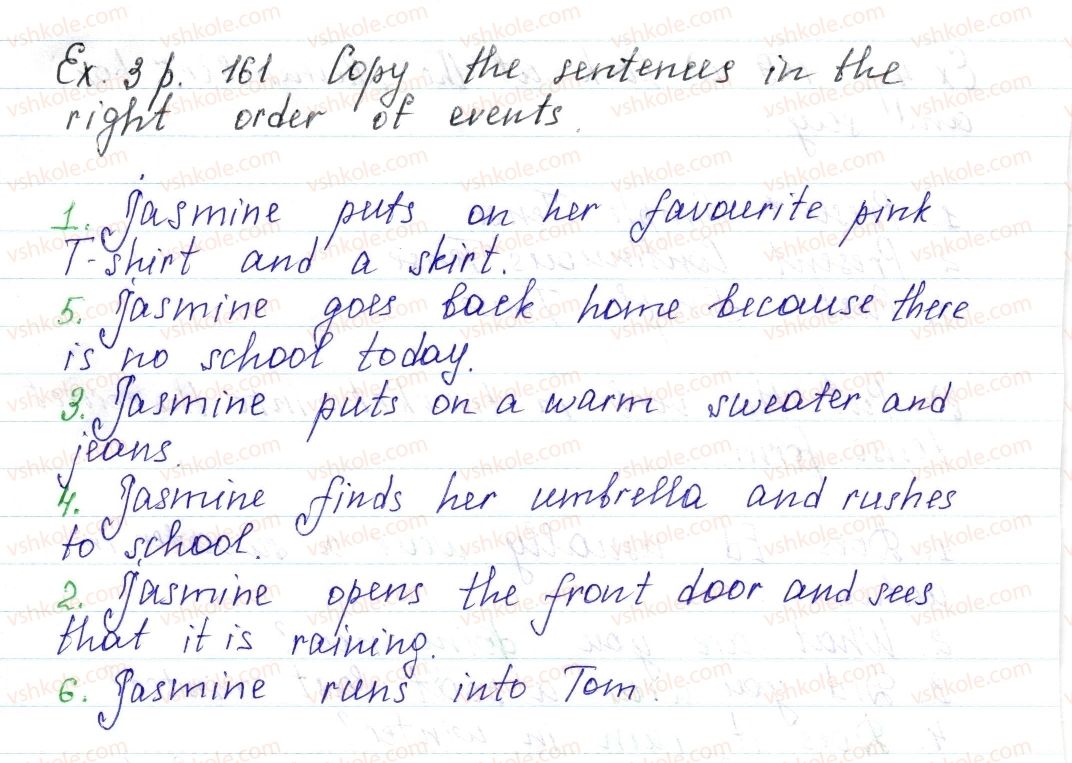 Ex. 3 p. 161 Copy the sentences in the
right order of events.
1. Jasmine puts on her favourite pink
T-shirt and a skirt.
5. Jasmine goes back home because there
is no school today.
3. Jasmine puts on a warm sweater and
jeans.
4. Jasmine finds her umbrella and rushes
to school.
2. Jasmine opens the front door and sees
that it is raining.
6. Jasmine runs into Tom.
vshkole.com